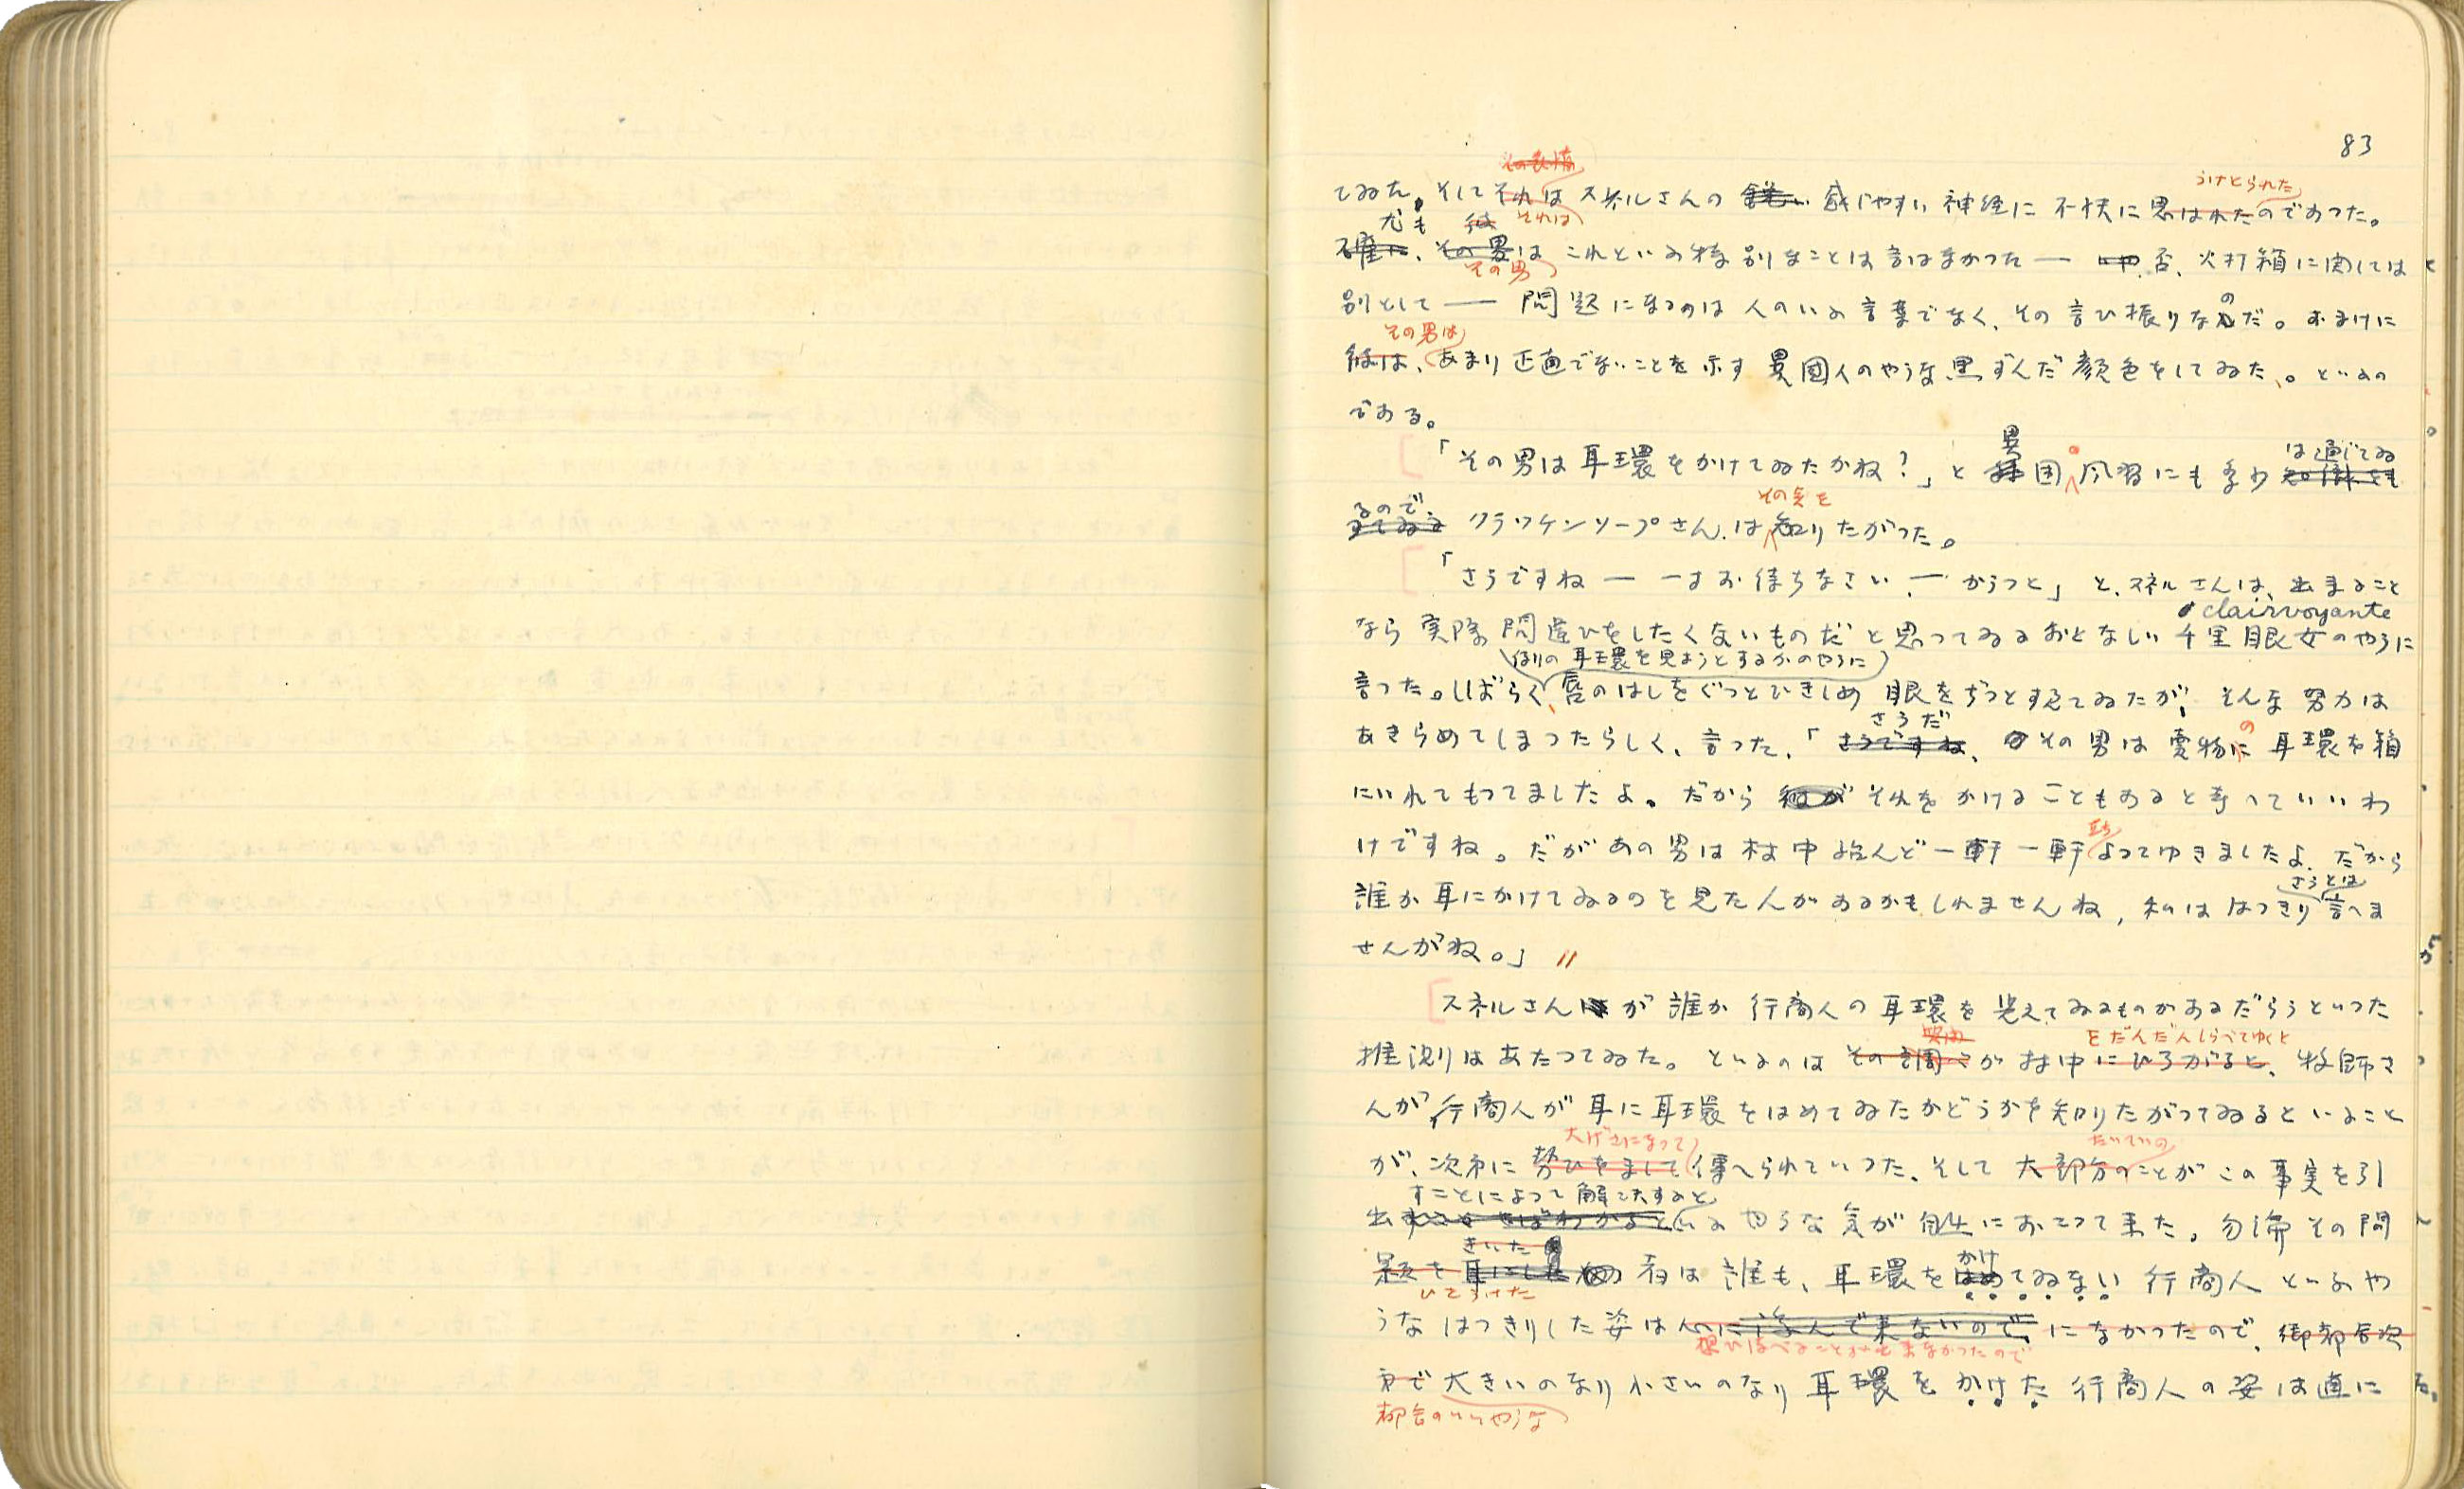 83
その表情
うけとられた
てゐた。そしてそれはスネルさんの鋭い感じやすい神経に不快に思はれたのであつた。
尤も 彼 それは
確に、その男は これといふ特別なことは言はなかつた ― いや 否、火打箱に関しては
その男
別として ― 問題になるのは人のいふ言葉でなく、その言ひ振りなのだ。おまけに
その男は
彼は、あまり正直でないことを示す異國人のやうな黒ずんだ顔色をしてゐた、。といふの
である。
異 は通じてゐ
「その男は耳環をかけてゐたかね？」と 国風習にも多少知識をも
るので、 その点を
つてゐる クラッケンソープさん、は知りたがつた。
「さうですね ― 一寸お待ちなさい ― かうつと」と、スネルさんは、出来ること
clairvoyante
なら実際間違ひをしたくないものだと思つてゐるおとなしい千里眼女のやうに
側の耳環を見ようとするかのやうに
言つた。しばらく、唇のはしをぐつとひきしめ 眼をぢつとすゑてゐたが、そんな努力は
さうだ の
あきらめてしまつたらしく、言つた、「さうですね、その男は売物に耳環を箱
にいれてもつてましたよ。だから彼がそれをかけることもあると考へていいわ
立ち
けですね。だがあの男は村中殆んど一軒一軒よつてゆきましたよ、だから
さうとは
誰か耳にかけてゐるのを見た人があるかもしれませんね、私ははつきり言へま
せんがね。」
スネルさんはが誰か行商人の耳環を覚えてゐるものがあるだらうといつた
をだんだんしらべてゆくと
推測はあたつてゐた。といふのはその調べが村中にひろがると、牧師さ
んが行商人が耳に耳環をはめてゐたかどうかを知りたがつてゐるといふこと
大げさになつて たいていの
が、次第に勢ひをまして傳へられていつた、そして大部分のことがこの事実を引
すことによつて解决すると
出すといふやうな気が自然におこつて来た。勿論その問
きいた かけ
題を耳にした者は誰も、耳環をはめてゐない行商人といふや
ひきうけた
うなはつきりした姿は心に浮んで来ないので、になかつたので、御都合次
想ひ浮べることが出来なかつたので
第で大きいのなり小さいのなり耳環をかけた行商人の姿は直に
都合のいいやうな